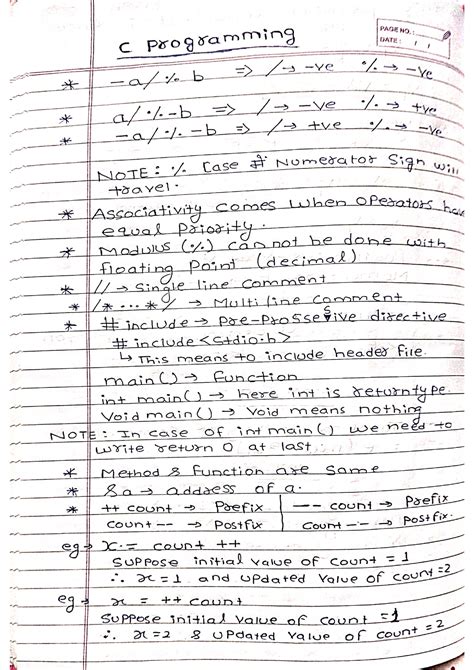 C Programming
PAGE NO.:
DATE: / /
* -a / % b ⇒ / → -ve % → -ve
* a / % -b ⇒ / → -ve % → +ve
* -a / % -b ⇒ / → +ve % → -ve
NOTE: % Case Numerator Sign will
travel.
* Associativity comes when operators have
equal Priority.
* Modulus (%) can not be done with
floating Point (decimal)
* // → Single line comment
* /* ... */ → Multi line comment
* # include → Pre-Prossesive directive
# include <stdio.h>
↳ This means to include header file.
main() → Function
int main() → here int is returntype.
Void main() → Void means nothing
NOTE: In case of int main() we need to
write return 0 at last.
* Method & Function are Same
* &a → address of a.
* ++ count → Prefix | -- count → Prefix
count -- → Postfix | count -- → Postfix.
eg → x = count ++
Suppose initial value of count = 1
∴ x = 1 and updated value of count = 2
eg → x = ++ count
Suppose initial value of count = 1
∴ x = 2 & updated value of count = 2